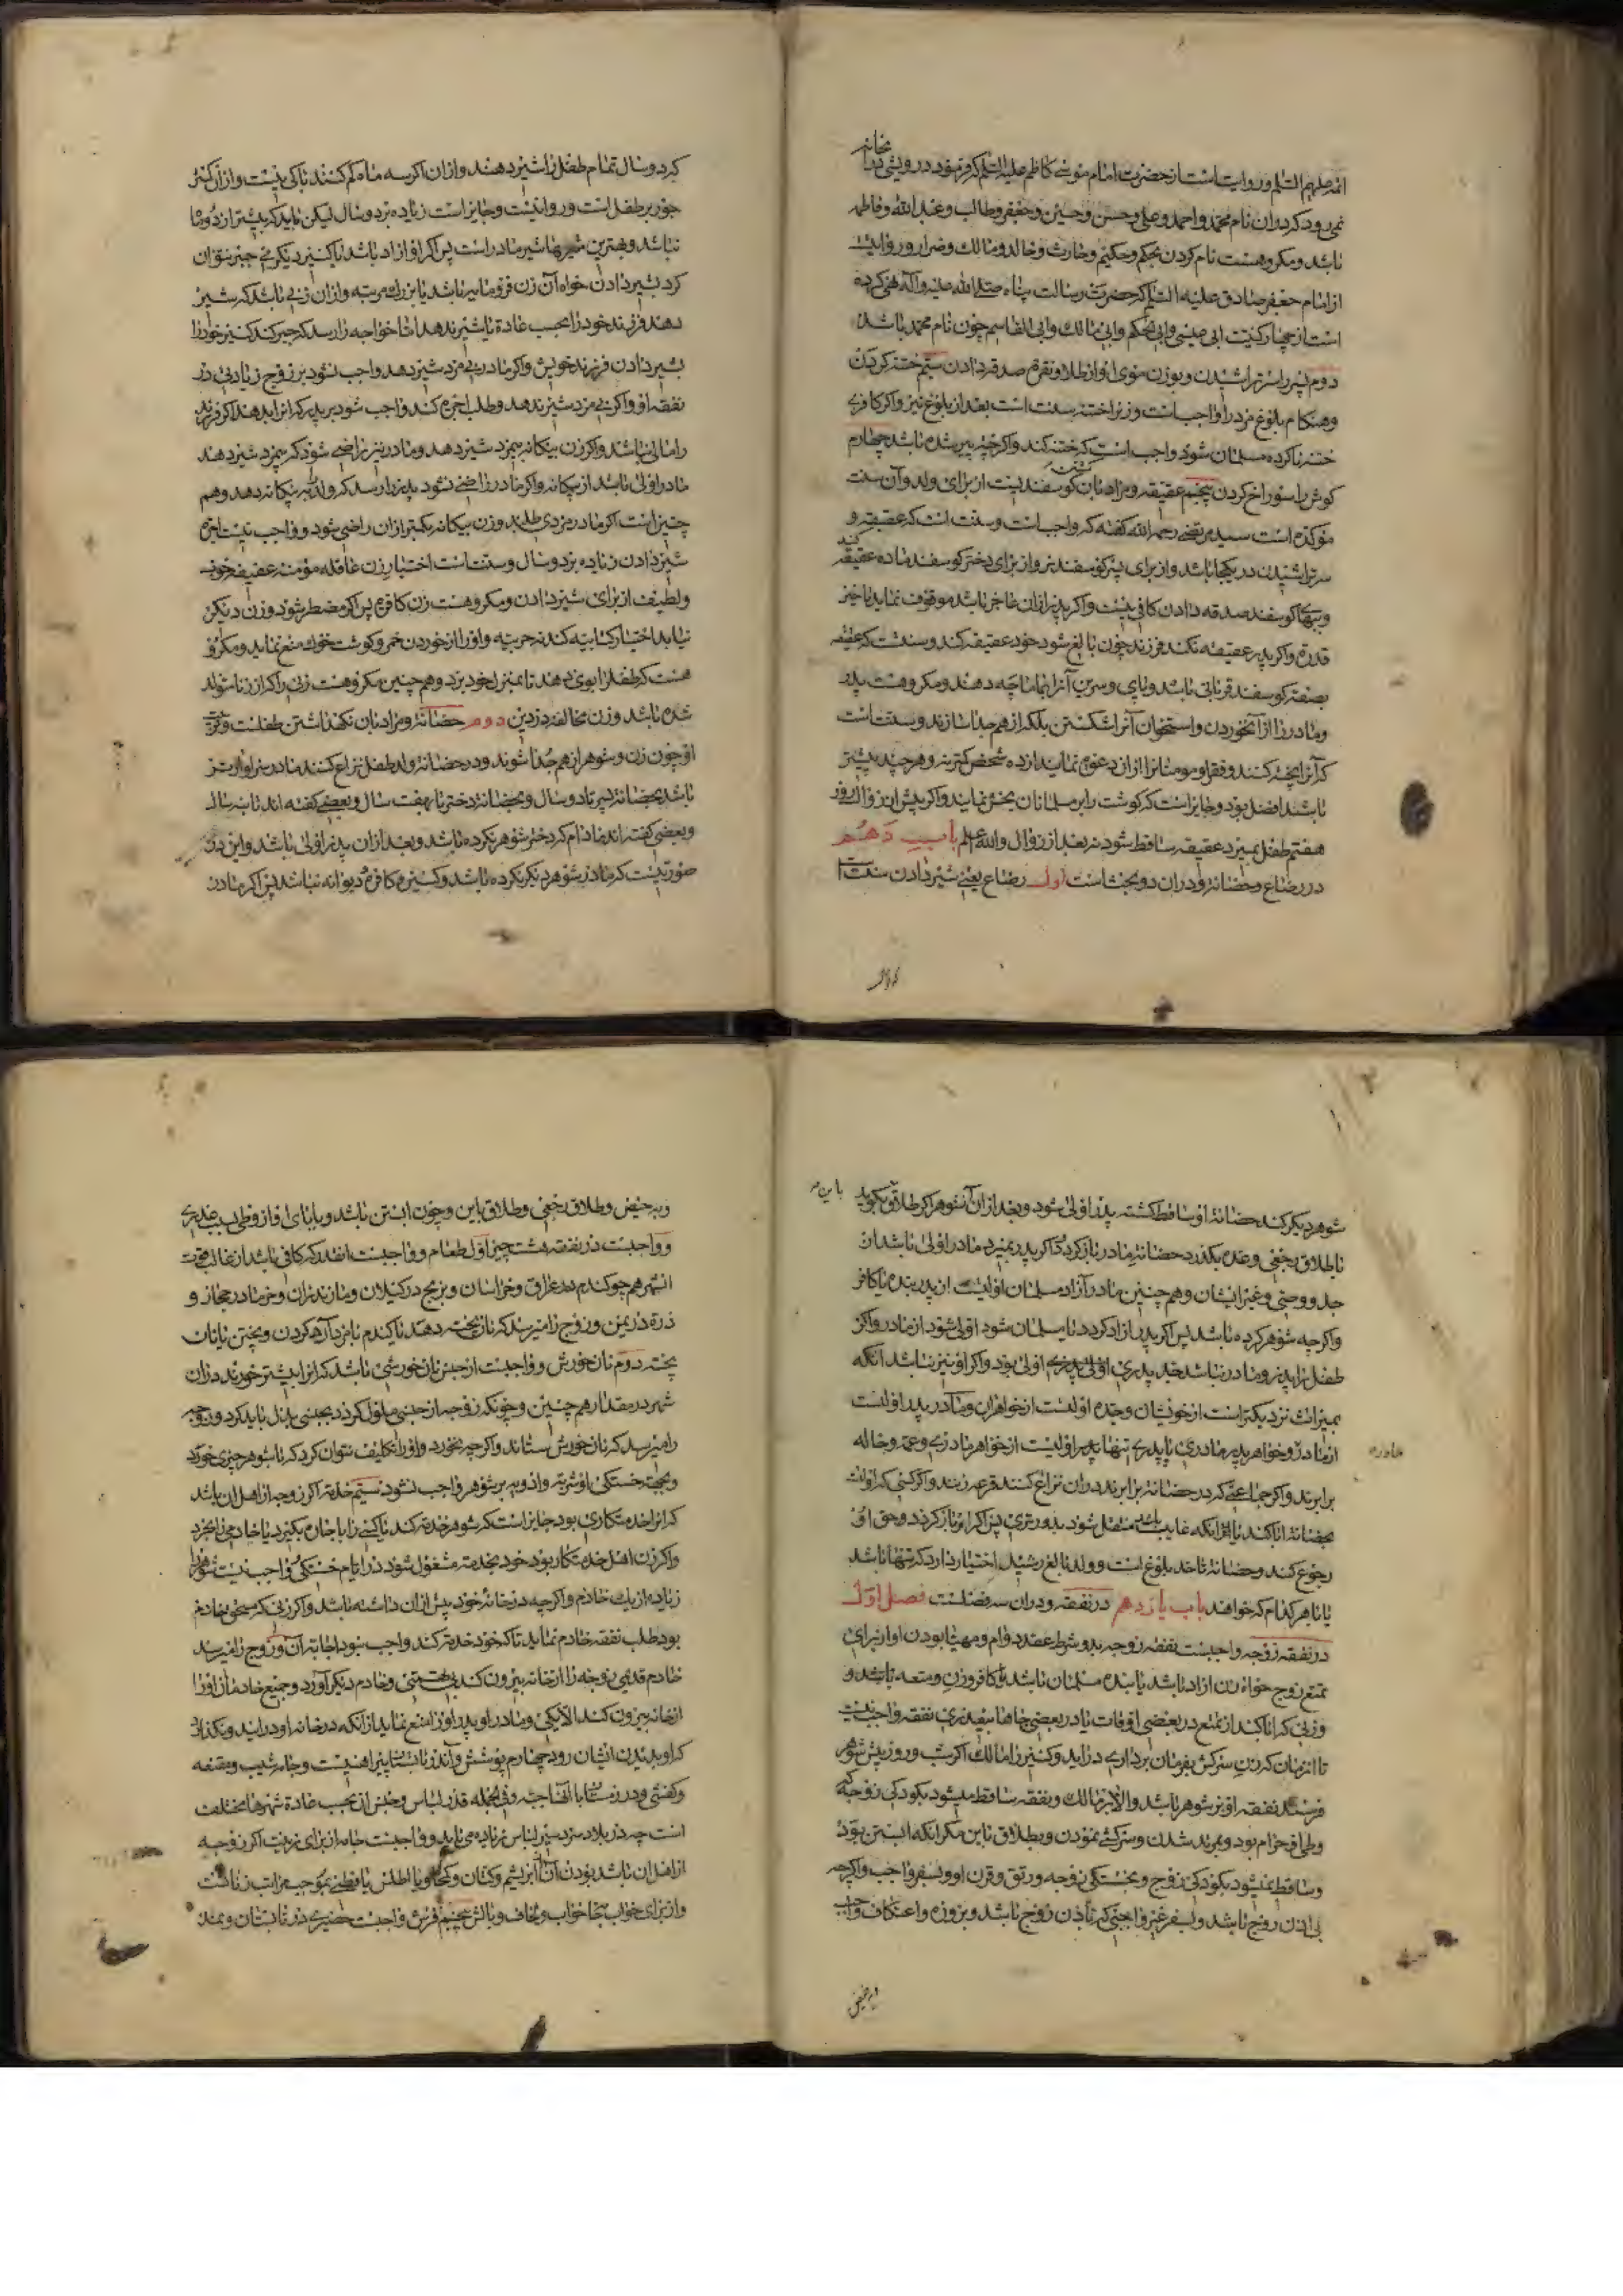 ائمه علیهم السلم و روایت است از حضرت امام موسی کاظم علیه السلم که فرمود درویشی در خانه
نمی رود که در ان نام محمد و احمد و علی و حسن و حسین و جعفر و طالب و عبد الله و فاطمه
باشد و مکروهست نام کردن بحکم و حکیم و حارث و خالد و مالک و ضرار و روایت
از امام جعفر صادق علیه السلم که حضرت رسالت پناه صلی الله علیه و آله نهی کرده
است از چهار کنیت ابی عیسی و ابی الحکم و ابی مالک و ابی القاسم چون نام محمد باشد
دوم پسر را سر تراشیدن و بوزن موی او از طلا و نقره صدقه دادن سیم ختنه کردن
و هنکام بلوغ مرد را واجب است و زنرا ختنه سنت است بعد از بلوغ نیز و اکر کافری
ختنه ناکرده مسلمان شود واجب است که ختنه کند و اکرچه پیر شده باشد چهارم
کوش را سوراخ کردن پنجم عقیقه و مراد بان کوسفند کشتن است از برای ولد و آن سنت
موکده است سید مرتضی رحمه الله کفته که واجب است و سنت است که عقیقه و
سر تراشیدن در یکجا باشد و از برای پسر کوسفند نر و از برای دختر کوسفند ماده عقیقه کند
و ببهاء کوسفند صدقه دادن کافی نیست و اکر پدر از ان عاجز باشد موقوف نماید تا حین
قدرة و اکر پدر عقیقه نکند فرزند چون بالغ شود خود عقیقه کند و سنت که عقیقه
بصفة کوسفند قربانی باشد و پای و سرین آنرا بماماچه دهند و مکروهست پدر
و مادر را از آنخوردن و استخوان آنرا شکستن بلکه از هم جدا سازند و سنت است
که آنرا پخته کنند و فقراء مومنانرا از ان دعوه نمایند از ده شخص کمتر نه و هرچند بیشتر
باشند افضل بود و جایز است که کوشت را بر مسلمانان بخش نماید و اکر پیش از زوال روز
هفتم طفل بمیرد عقیقه ساقط شود نه بعد از زوال و الله اعلم باب دهم
در رضاع و حضانة و در ان دو بحث است اول رضاع یعنی شیر دادن سنت است
که دو سال تمام طفل را شیر دهند و از ان اکر سه ماه کم کنند باکی نیست و از ان کمتر
جور بر طفل است و روا نیست و جایز است زیاده بر دو سال لیکن باید که بیشتر از دو ماه
نباشد و بهترین شیرها شیر مادر است پس اکر او ازاد باشد یا کنیز دیکری جبر نتوان
کرد بشیر دادن خواه آن زن فرومایه باشد یا بزرك مرتبه و از ان زنی باشد که شیر
دهند فرزند خود را بحسب عادة یا شیر ندهد اما خواجه را رسد که جبر کند کنیز خود را
بشیر دادن فرزند خویش و اکر مادر بی مزد شیر دهد واجب نشود بر زوج زیادتی در
نفقه او و اکر بی مزد شیر ندهد و طلب اجره کند واجب شود بر پدر که انرا بدهد اکر فرزند
را مالی نباشد و اکر زن بیکانه بیمزد شیر دهد و مادر نیز راضی شود که بیمزد شیر دهد
مادر اولی باشد از بیکانه و اکر مادر راضی نشود پدر را رسد که ولد را به بیکانه دهد و هم
چنین است اکر مادر مزدی طلبد و زن بیکانه بکمتر از ان راضی شود و واجب نیست اجره
شیر دادن زیاده بر دو سال و سنت است اختیار زن عاقله مومنه عفیفه خوب
و لطیف از برای شیر دادن و مکروهست زن کافره پس اکر مضطر شود و زن دیکر
نیابد اختیار کتابیه کند نه حربیه و او را از خوردن خمر و کوشت خوك منع نماید و مکروه
هست که طفل را بوی دهند تا بمنزل خود برد و هم چنین مکروهست زنی را که از زنا متولد
شده باشد و زن مخالفه در دین دوم حضانة و مراد بان نکهداشتن طفلست و تربیة
او چون زن و شوهر از هم جدا شوند و در حضانة ولد طفل نزاع کنند مادر سزاوارتر
باشد بحضانة پسر تا دو سال و بحضانة دختر تا بهفت سال و بعضی کفته اند تا نه سال
و بعضی کفته اند مادام که دختر شوهر نکرده باشد و بعد از ان پدر اولی باشد و این در
صورتیست که مادر شوهر دیکر نکرده باشد و کنیز و کافره و دیوانه نباشد پس اکر مادر
شوهر دیکر کند حضانة او ساقط کشته پدر اولی شود و بعد از ان آنشوهر اکر طلاق بکوید باین
یا بطلاق رجعی و عده بکذرد حضانة مادر باز کردد و اکر پدر بمیرد مادر اولی باشد از
جد و وصی و غیر ایشان و هم چنین مادر آزاد مسلمان اولیست از پدر بنده یا کافر
و اکرچه شوهر کرده باشد پس اکر پدر ازاد کردد یا مسلمان شود اولی شود از مادر و اکر
طفل را پدر و مادر نباشد جد پدری اولی بود و اکر او نیز نباشد آنکه
بمیراث نزدیکتر است از خویشان وجده اولیست از خواهران و مادر پدر اولیست
از مادر مادر و خواهر پدر مادری یا پدری تنها اولیست از خواهر مادری و عمه و خاله
برابرند و اکر جماعتی که در حضانة برابرند در ان نزاع کنند قرعه زنند و اکر کسی که اولیست
بحضانة ابا کند یا انکه غایب باشد منتقل شود بدورتری پس اکر او باز کردد حق او
رجوع کند و حضانة تا حد بلوغ است و ولد بالغ رشید اختیار دارد که تنها باشد
یا با هر کدام که خواهد باب یازدهم در نفقه و در ان سه فصلست فصل اول
در نفقه زوجه واجبست نفقه زوجه بدو شرط عقد دوام و مهیا بودن او از برای
تمتع زوج خواه زن ازاد باشد یا بنده مسلمان باشد یا کافر و زن متعه باشد و
و زنی که ابا کند از تمتع در بعضی اوقات یا در بعضی جاها بیعذری نفقه واجب نیست
تا انزمان که زن سرکش بفرمان برداری در اید و کنیز را مالك اکر شب و روز پیش شوهر
فرستد نفقه او بر شوهر باشد و الا بر مالك و نفقه ساقط میشود بکودکی زوجه که
وطی او حرام بود و بمرتد شدن و سرکشی نمودن و بطلاق باین مکر انکه ابستن بود
و ساقط نمیشود بکودکی زوج و بخستکی زوجه و رتق و قرن او و بسفر واجب و اکرچه
بی اذن زوج باشد و بسفر غیر واجبی که باذن زوج باشد و بروزه و اعتکاف واجب
و به حیض و طلاق رجعی و طلاق باین و چون ابستن باشد و بابای او از وطی بسبب عذری
و واجبست در نفقه هشت چیز اول طعام و واجبست انقدر که کافی باشد از غالب قوت
انشهر هم چو کندم در عراق و خراسان و برنج در کیلان و مازندران و خرما در حجاز و
ذرة در یمن و زوج را میرسد که نان پخته دهد یا کندم با مزد آرد کردن و پختن یا نان
پخته دوم نان خورش و واجبست از جنس نان خورشی باشد که انرا بیشتر خورند در ان
شهر در مقدار هم چنین و چونکه زوجه از جنسی ملول کردد بجنسی بدل باید کرد و زوجه
را میرسد که نان خورش ستاند و اکرچه نخورد و او را تکلیف نتوان کرد که با شوهر چیزی خورد
و بجهة خستکی او شربة و ادویه بر شوهر واجب نشود سیم خدمة اکر زوجه از اهل ان باشد
که انرا خدمتکاری بود جایز است که شوهر خدمة کند یا کسی را باجاره بکیرد یا خادمی را بخرد
و اکر زن اهل خدمتکار بود خود بخدمة مشغول شود در ایام خستکی و واجب نیست شوهر را
زیاده از یك خادم و اکرچه در خانۀ خود پیش از ان داشته باشد و اکر زنی که مستحق خادم
بود طلب نفقه خادم نماید تا که خود خدمة کند واجب نبود اجابة ان و زوج را میرسد
خادم قدیمی زوجه را از خانه بیرون کند بتهمتی و خادم دیکر آورد و جمیع خادمان او را
از خانه بیرون کند الا یکی و مادر او پدر او را منع نماید از انکه در خانه او در ایند و نکذارد
که او بدیدن ایشان رود چهارم پوشش و آن در تابستان پیراهنیست و جامه شیب و مقنعه
و کفشی و در زمستان با انها جبه و فی الجمله قدر لباس و جنس ان بحسب عادة شهرها مختلف
است چه در بلاد سردسیر لباس زیاده می باید و واجبست جامه از برای زینت اکر زوجه
از اهل ان باشد بودن آن از ابریشم و کتان و کمخا و یا اطلس یا قطنی بموجب مراتب زنان
و از برای خواب جامۀ خواب و لحاف و بالش پنجم فرش واجبست حصیری در تابستان و نمد